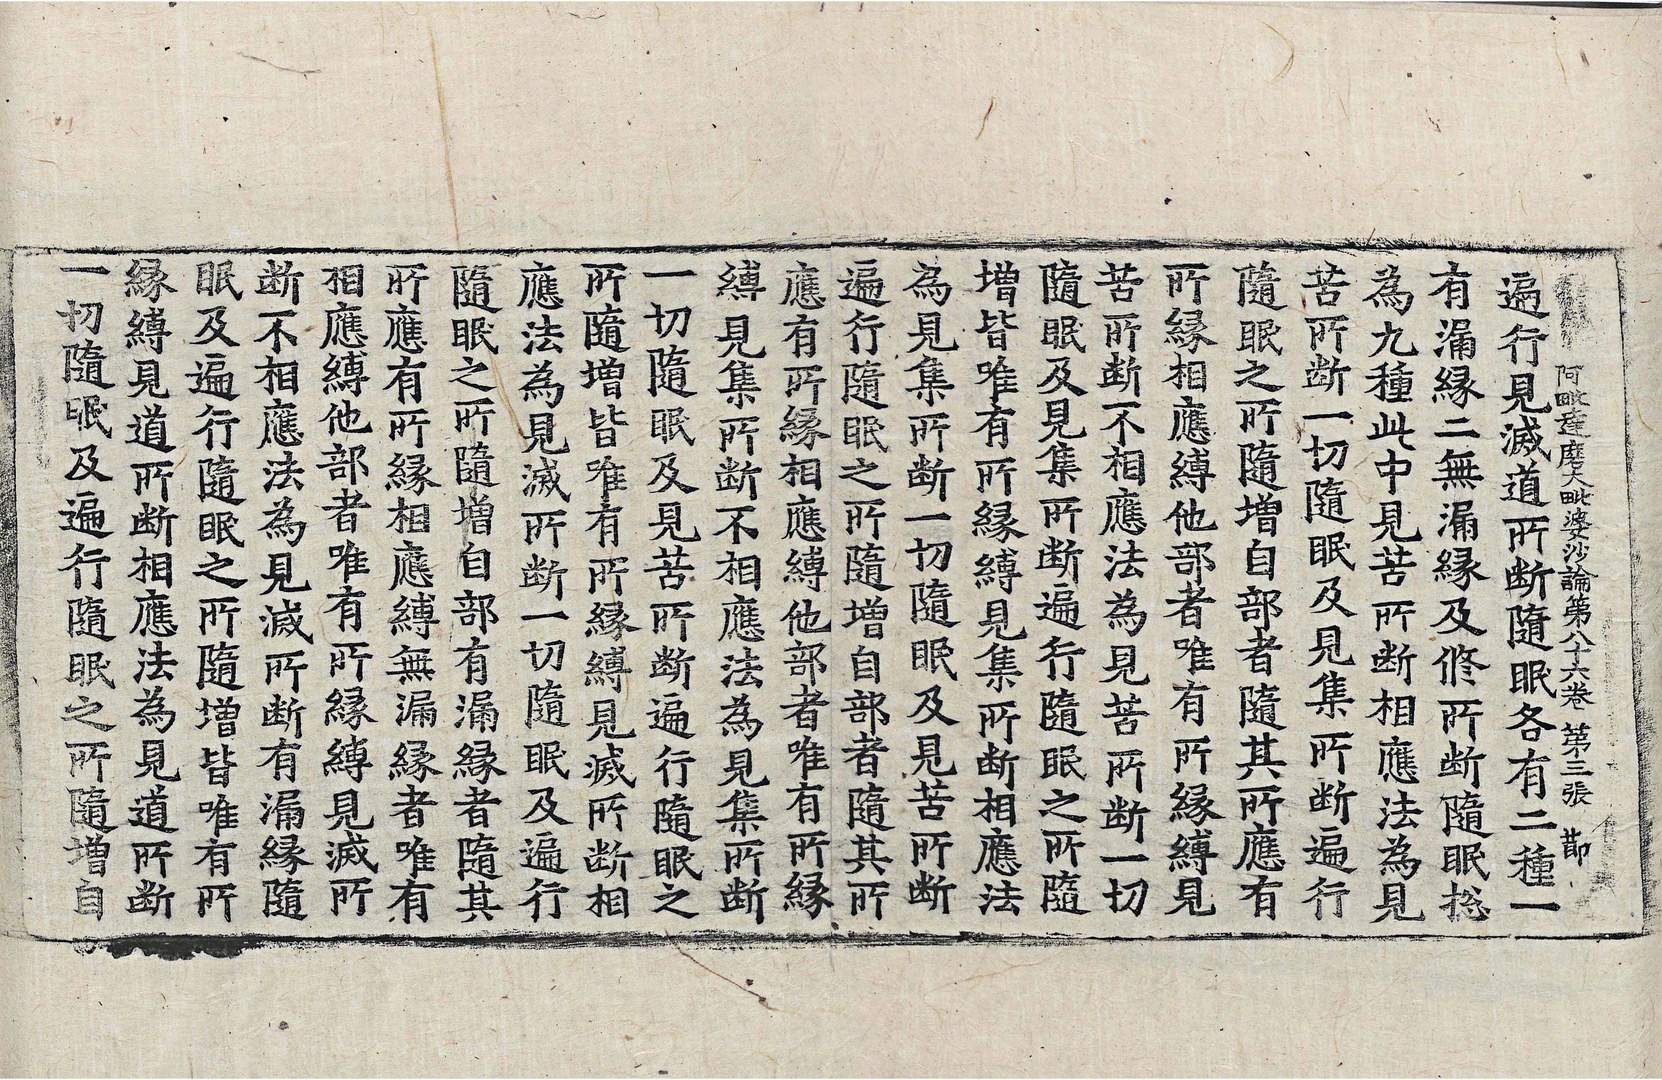 阿毗達磨大毗婆沙論第八十六卷 第三張 莭
遍行見滅道所断隨眠各有二種一
有漏縁二無漏縁及修所断隨眠捴
為九種此中見苦所断相應法為見
苦所断一切隨眠及見集所断遍行
隨眠之所隨增自部者隨其所應有
所縁相應縛他部者唯有所縁縛見
苦所断不相應法為見苦所断一切
隨眠及見集所断遍行隨眠之所隨
增皆唯有所縁縛見集所断相應法
為見集所断一切隨眠及見苦所断
遍行隨眠之所隨增自部者隨其所
應有所縁相應縛他部者唯有所縁
縛見集所断不相應法為見集所断
一切隨眠及見苦所断遍行隨眠之
所隨增皆唯有所縁縛見滅所断相
應法為見滅所断一切隨眠及遍行
隨眠之所隨增自部有漏縁者隨其
所應有所縁相應縛無漏縁者唯有
相應縛他部者唯有所縁縛見滅所
断不相應法為見滅所断有漏縁隨
眠及遍行隨眠之所隨增皆唯有所
縁縛見道所断相應法為見道所断
一切隨眠及遍行隨眠之所隨增自